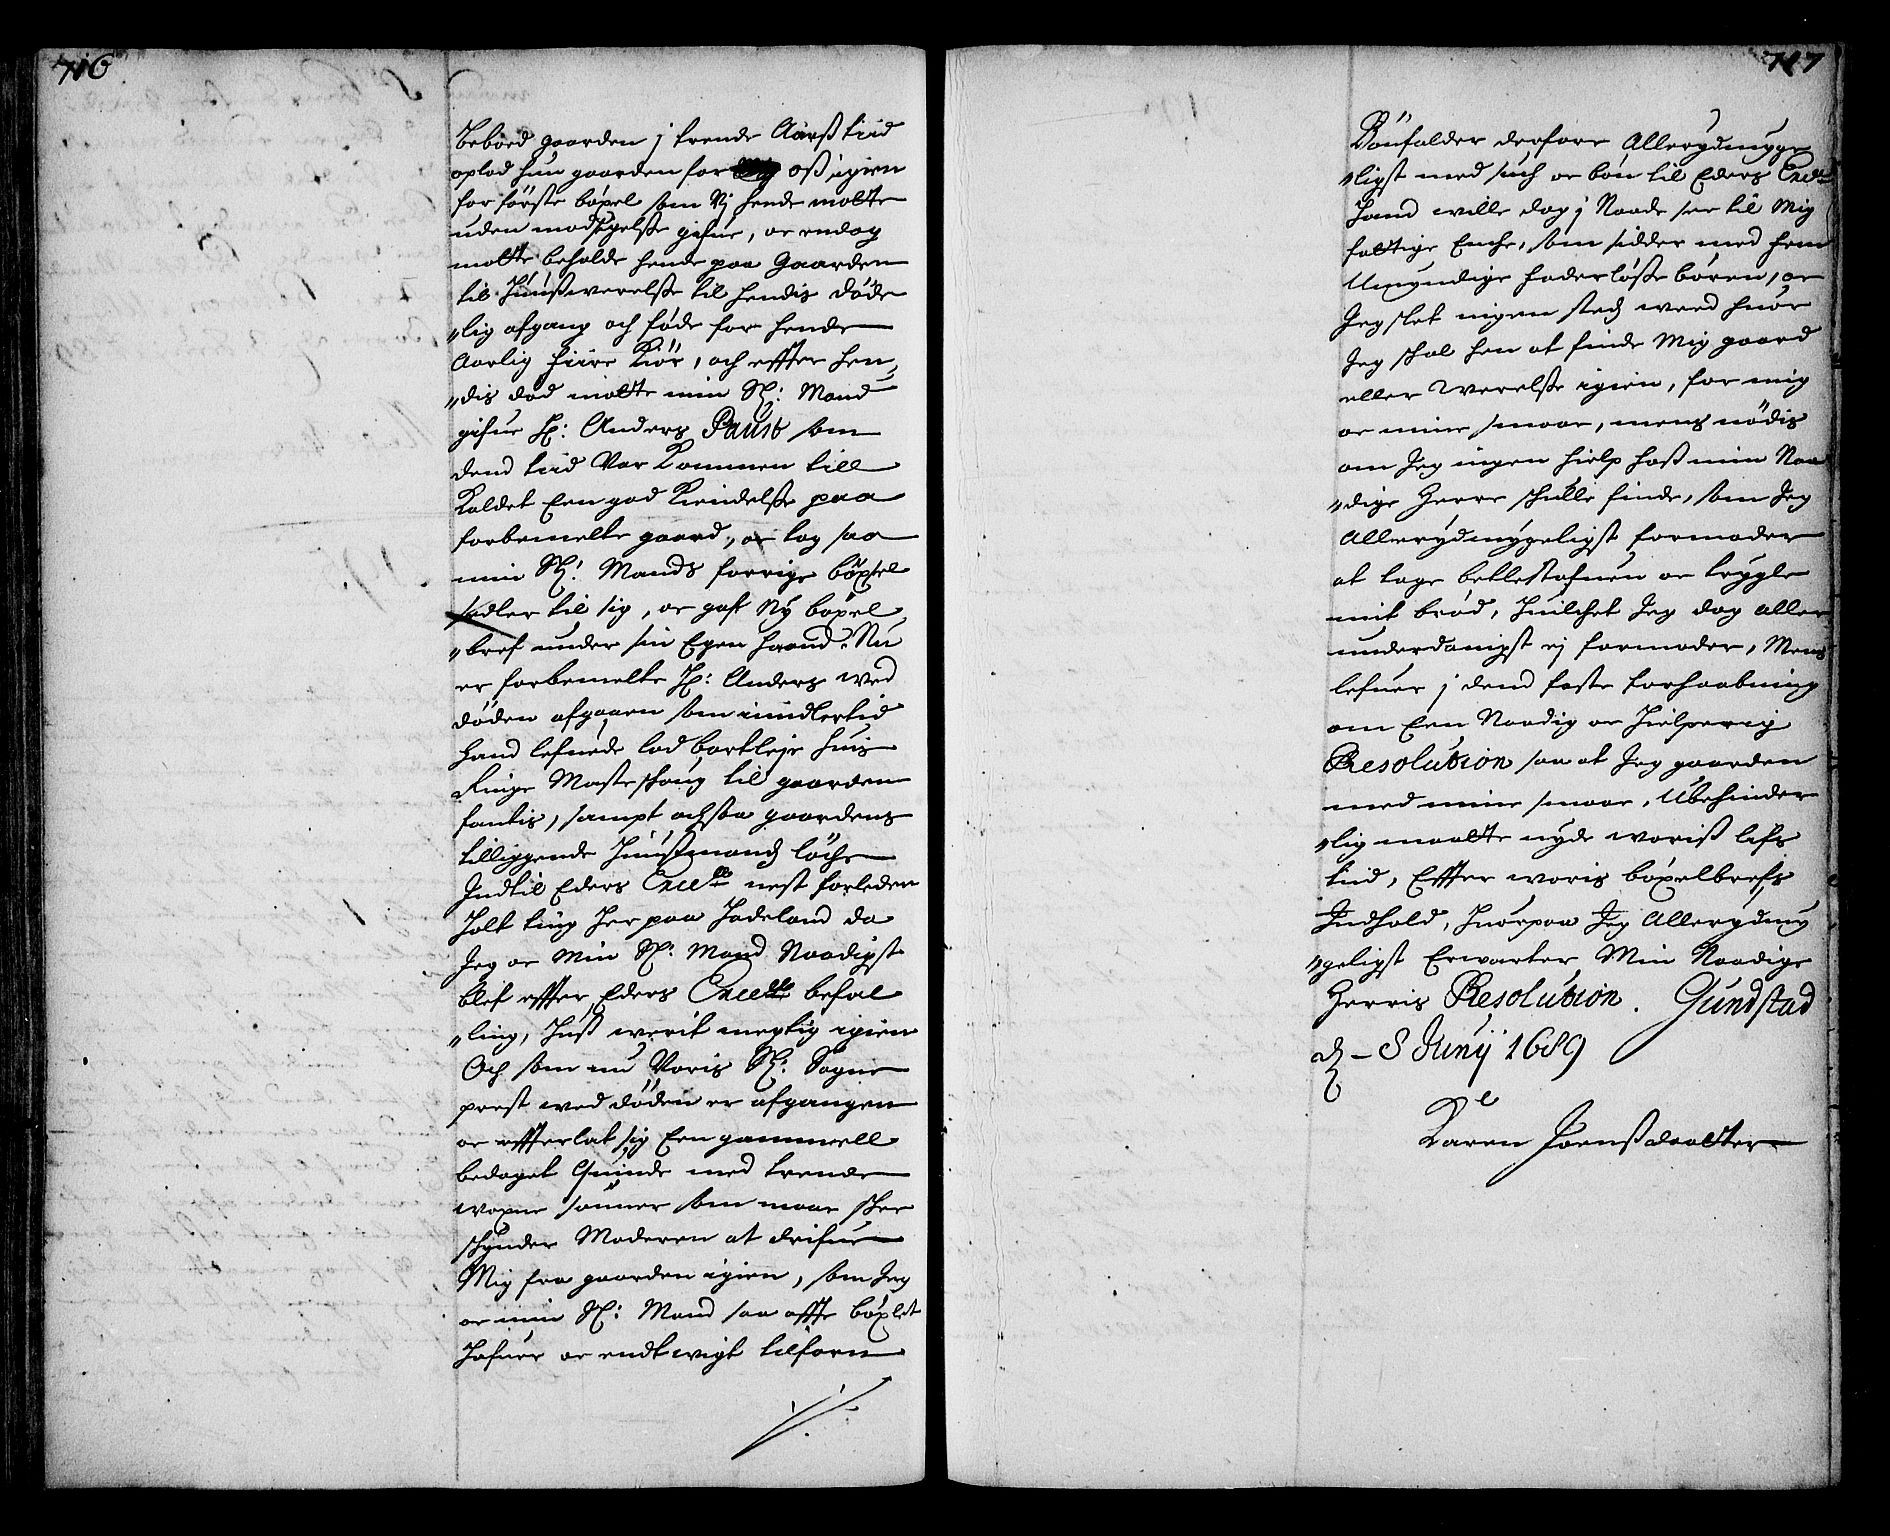 716
beboed gaarden j trende Aarsz tiid
oplod hun gaarden for osz igien
for første böxel som Vj hende motte
uden modsigelsze gifue, oc endog
motte beholde hende paa Gaarden
til huuszwerelsze til hendis döde¬
„lig afgang och föde for hende
Aarlig fiire Kiör, och effter hen¬
„dis död motte min Sl: Mand
gifue H: Anders Paust som
dend tiid Var Kommen till
Kaldet Een god Kiendelsze paa
forbemelte gaard, oc tog saa
min Sl: Mands forrige böxsel
sedler til sig, oc gaf Ny böxel
„bref under sin Egen haand. Nu
er forbemelte H: Anders wed
döden afgaaen som imidlertid
hand lefuede lod bortleje huis
ringe Masteskoug til gaarden
fantis, sampt ochsaa gaardens
tilliggende huuszmands löche
Indtil Eders Excellce nest forleden
holt ting her paa Hadeland da
Jeg oc Min Sl: Mand Naadigst
blef effter Eders Excellce befal¬
„ling, husz werit megtig igien
Och som nu Voris Sl: Sogne
prest wed döden er afgangen
oc effterlat sig Een gammell
bedaget Quinde med trende
woxne sönner som maa skee
skynder Moderen at drifue
Mig fra gaarden igien, som Jeg
oc min Sl: Mand saa offte böxlet
hafuer oc endt wigt tilforn
717
Bönfalder derfore Allerydmyge¬
„ligst med such oc bön til Eders Excellce
hand wille dog j Naade see til Mig
fattige Enche, som sidder med fem
Umyndige faderlösze bören, oc
Jeg slet ingen sted weed huor
Jeg skal hen at finde Mig gaard
eller werelsze igien, for mig
oc mine smaae, mens nödis
om Jeg ingen hielp hosz min Naa¬
„dige Herre skulle finde, som Jeg
Allerydmygeligst formoder
at tage bettelstafuen oc trygle
mit bröd, huilchet Jeg dog aller
underdanigst ej formoder, Mens
lefuer j dend faste forhaabning
om Een Naadig oc hielperig
Resolution saa at Jeg gaarden
med mine smaae, Ubehinder¬
„lig maatte nyde worisz lifs
tiid, Effter woris böxelbrefs
Indhold, huorpaa Jeg Allerydmy¬
„geligst Erwarter Min Naadige
Herris Resolution. Gundstad
d – 8 Junij 1689
Karen Joenszdaatter